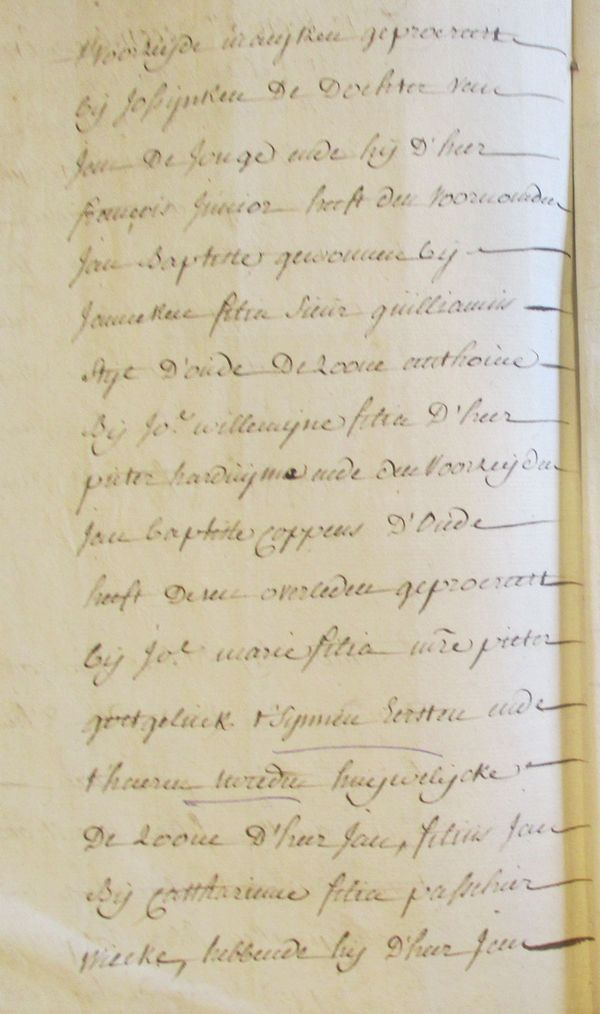 t'voorseijde maijken geprocreert
bij Jossijnken De Dochter van
Jan De Jonge ende hij D'heer
françois Junior heeft den voornomden
Jan Baptiste gewonnen bij
Janneken filia Sieur guilliamis
D'oude De Zoone anthoine
Bij Jo.e willemijne filia D'heer
pieter harduijns ende den Voorseijden
Jan baptiste coppens D'Oude
heeft Desen overleden geprocreert
bij Jo.e marie filia mre pieter
goetgeluck t'Synnen Eersten ende
t'haeren tweeden huijwelijcke
De Zoone D'heer Jan, filius Jan
Bij Catharinne filia passchier
hebbende hij D'heer Jan